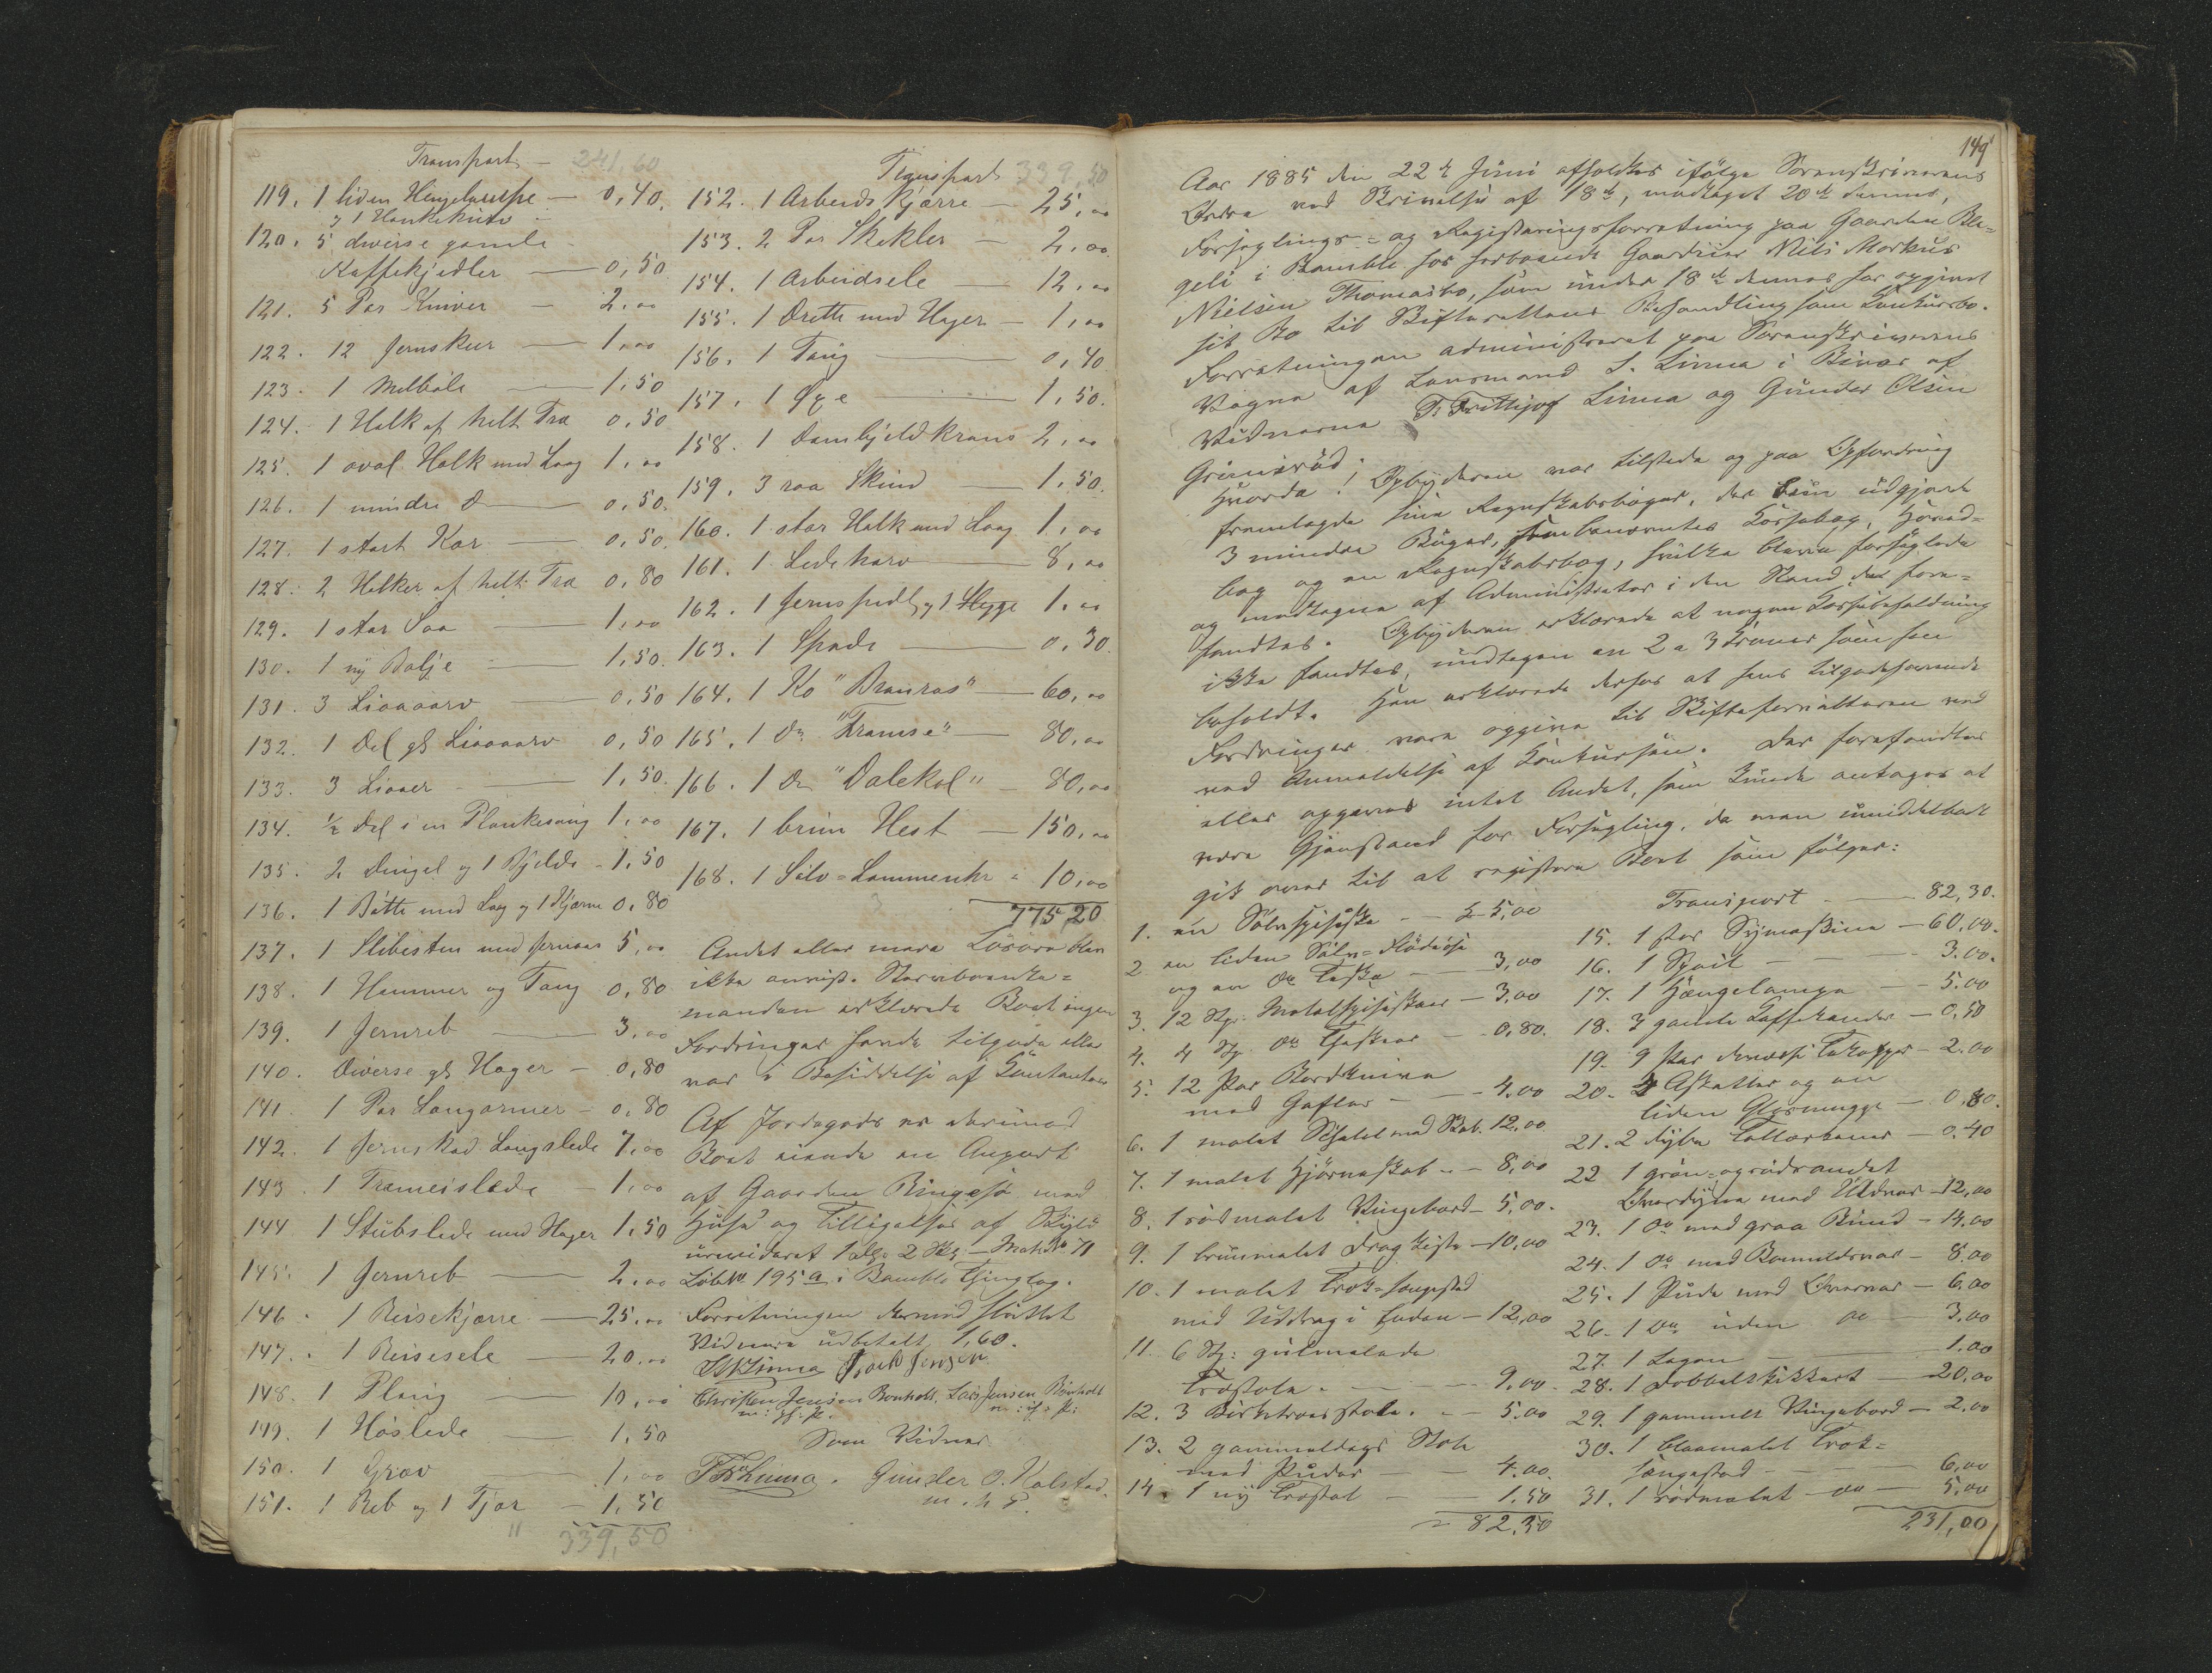 Transport - 241,60
119. 1 liden Hengelampe — 0,40.
og 1 Hankekurv -
120. 5 diverse gamle
Kaffekjedler — 0,50
121. 5 Par Kniver - 2,00
122. 12 Jernskeer — 1,00
123. 1 Melbøle — 1,50
124. 1 Holk af helt Træ 0,50
125. 1 oval Holk med Laag 1,00
126. 1 mindre Do — 0,50.
127. 1 stort Kar — 0,50.
128. 2 Holker af helt Træ 0,80
129. 1 stor Saa — 1,00
130. 1 ny Balje — 1,50.
131. 3 Liaaaarv — 0,50
132. 1 Del gl. Liaaaarv 0,50
133. 3 Liaaer — 1,50.
134. ½ Del i en Plankesaug 1,00
135. 2 Dingel og 1 Bjelde - 1,50
136. 1 Bøtte med Laag og 1 Kjærne 0,80
137. 1 Slibesten med Jernaas 5,00
138. 1 Hammer og Tang 0,80
139. 1 Jernreb — 3,00
140. Diverse gl. Hager — 0,80
141. 1 Par Langarmer - 0,80
142. 1 Jernskod Langslede 7,00
143. 1 Træmeislede - 1,00
144 1 Stubslede med Hager 1,50
145. 1 Jernreb — 2,00
146. 1 Reisekjærre — 25,00
147. 1 Reisesele — 20,00
148. 1 Ploug — 10,00
149. 1 Høslede — 1,50
150. 1 Grev — 1,00
151. 1 Reb og 1 Tjor — 1,50
339,50
Transport 339,50
152. 1 Arbeidskjærre — 25,00
153. 2 Par Skekler — 2,00
154. 1 Arbeidsele — 12,00
155. 1 Drette med Hager — 1,00
156. 1 Tang — 0,40
157. 1 Øxe — 1,50.
158. 1 Dombjeldkrans 2,00
159. 3 raa Skind — 1,50.
160. 1 stor Holk med Laag 1,00
161. 1 Ledeharv — 8,00
162. 1 Jernspedt og 1 Slegge 1,00
163. 1 Spade — 0,30.
164. 1 Ko "Branros" — 60,00
165. 1 Do "Framse" — 80,00
166. 1 Do "Dalekol" — 80,00
167. 1 brun Hest — 150,00
168. 1 Sølv-Lommeuhr - 10,00
775,20
Andet eller mere Løsøre blev
ikke anvist. Stervboenke-
manden erklærede Boet ingen
Fordringer havde tilgode eller
var i Besiddelse af Contanter
Af Jordegods er derimod
Boet eiende en Anpart
af Gaarden Ringsjø med
Huse og Tilligelser af Skyld
urevideret 1 alb. 2 Sk. — Mat. No 71
Løb. No 195a i Bamble Thinglag.
Forretningen dermed sluttet
Vidnerne udbetalt 1,60.
S. Linna Isack Jensen
Christen Jensen Bonholt, Lars Jensen Bonholt
Som Vidner
F. Linna. Gunder O. Kalstad.
m. h. P.
149
Aar 1885 den 22de Juni afholdtes ifølge Sorenskriverens
Ordre ved Skrivelse af 18de, modtaget 20de dennes,
Forseglings- og Registreringsforretning paa Gaarden Ble-
geli i Bamble hos forboende Gaardeier Nils Markus
Nielsen Thomasbo, som under 18de dennes har opgivet
sit Bo til Skifterettens Behandling som Konkursbo.
Forretningen administreret paa Sorenskriverens
Vegne af Lensmand S. Linna i Bivær af
Vidnerne Fritthjof Linna og Gunder Olsen
Grimsrød.
Hvorda! Opbyderen var tilstede og paa Opfordring
fremlagde sine Regnskabsbøger, der kun udgjorde
3 mindre Bøger, saakaldte Kassabog, Hoved-
bog og en Regnskabsbog, hvilke bleve forseglede
og modtagne af Administrator i den Stand de fore-
fandtes. Opbyderen erklærede at nogen Kassebeholdning
ikke fandtes, undtagen en 2 a 3 Kroner som han
beholdt. Han erklærede derhos at hans tilgodehavende
Fordringer vare opgivne til Skifteforvalteren ved
ved Anmeldelse af Konkursen. Der forefandtes
eller opgaves intet Andet, som kunde antages at
være Gjenstand for Forsegling, da man umiddelbart
gik over til at registrere Boet som følger:
1. en Sølvspiseske — 5,00
2 en liden Sølv-Flødeøse
og en do Theske — 3,00
3. 12 Stk. Metalspiseskeer — 3,00
4. 4 Stk. do Theskeer — 0,80.
5. 12 Par Bordknive
med Gafler — 4,00
6. 1 malet Schatol med Skab. 12,00
7. 1 malet Hjørneskab — 8,00
8. 1 rødmalet Vingebord — 5,00.
9. 1 brunmalet Dragkiste — 10,00
10. 1 malet Træk-Sengested
med Uddrag i Enden — 12,00
11. 6 Stk: gulmalede
Træstole. — 9,00
12. 3 Birketræs stole. — 5,00
13. 2 gammeldags Stole
med Puder — 4,00.
14. 1 ny Træstol — 1,50
82,30
Transport — 82,30.
15. 1 stor Symaskine — 60,00.
16. 1 Speil — 3.00.
17. 1 Hængelampe — 5.00
18. 3 gamle Kaffekander — 0,50
19. 9 Par diverse Thekopper — 2.00
20. 4 Asketter og en
liden Glasmugge — 0,80.
21. 2 dybe Tallerkener — 0.40
22 1 grøn- og rødrandet
Overdyne med Uldvar — 12,00
23. 1 do med graa Bund — 14.00
24. 1 do med Bomuldsvar — 8.00
25. 1 Pude med Overvar — 6.00
26. 1 do uden do — 3,00
27. 1 Lagen — 1.00
28. 1 Dobbeltkikkert — 20,00
29. 1 gammelt Vingebord — 2,00
30. 1 blaamalet Træk-
sengested — 6,00
31. 1 rødmalet — do — 5,00
231,00